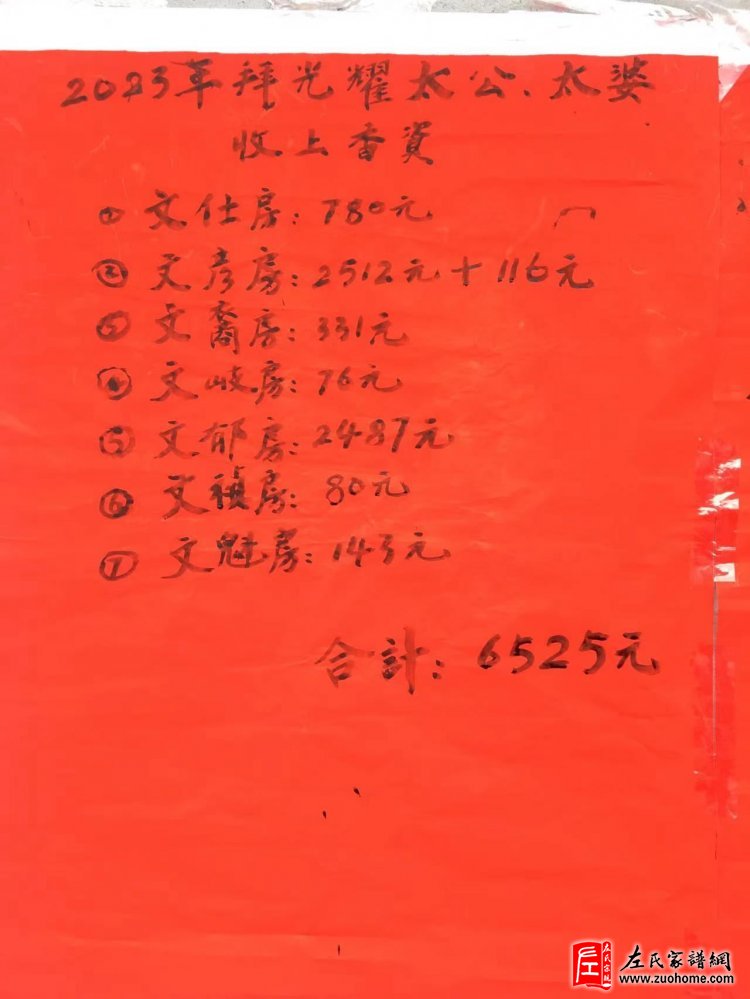 2023年拜光耀太公、太婆
收上香資
① 文仕房：780元
② 文彦房：2512元+116元
③ 文裔房：331元
④ 文岐房：76元
⑤ 文郁房：2487元
⑥ 文禎房：80元
⑦ 文魁房：143元
合計：6525元
左氏家譜網
www.zuohome.com